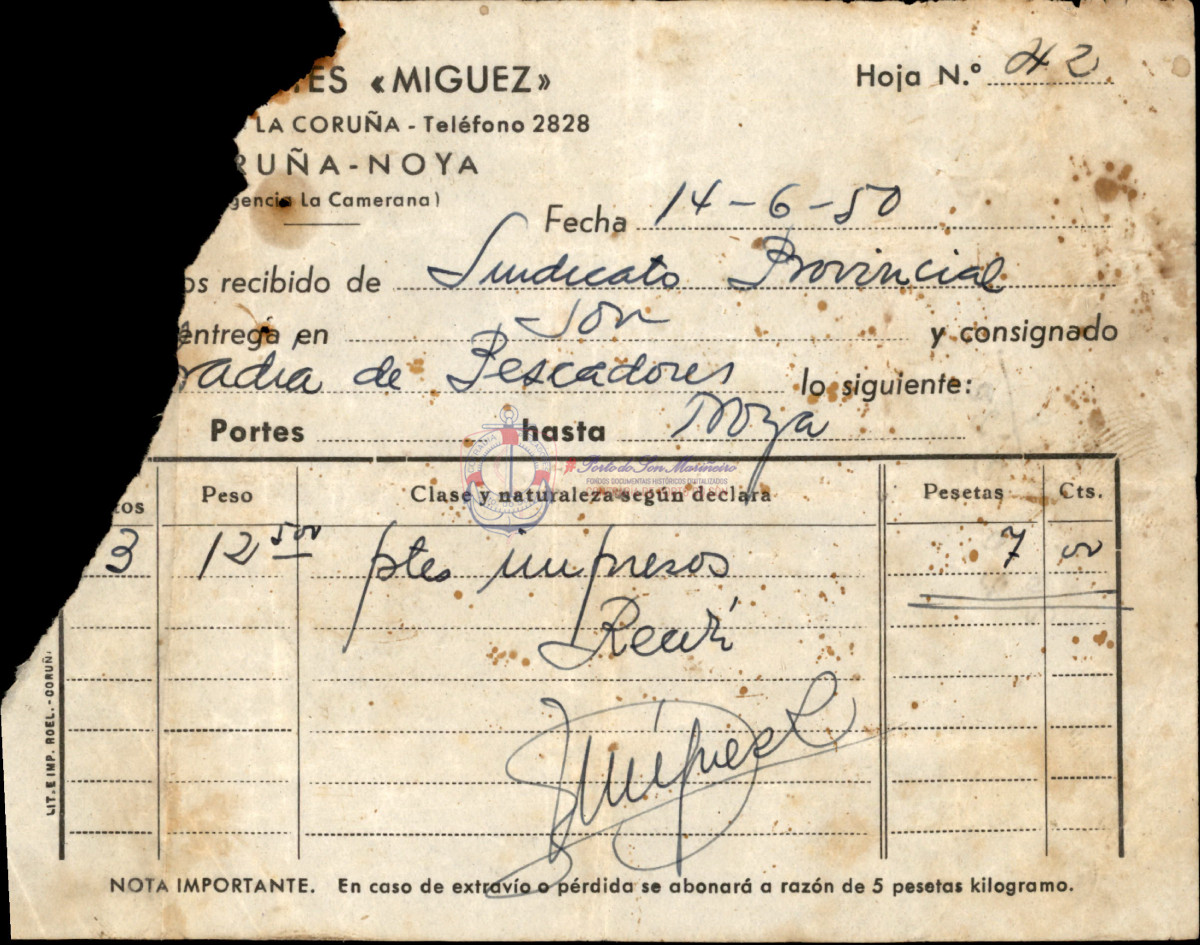 ES «MIGUEZ»
Hoja N.º 42
LA CORUÑA - Teléfono 2828
RUÑA - NOYA
gencia La Camerana)
Fecha 14-6-50
os recibido de Sindicato Provincial
entrega en Son y consignado
radia de Pescadores lo siguiente:
Portes hasta Noya
#PortodoSon Mariñeiro
FONDOS DOCUMENTAIS HISTÓRICOS DIGITALIZADOS
tos Peso Clase y naturaleza según declara Pesetas Cts.
3 12 500 ptes impresos 7 00
Recibí
Miguez
LIT. E IMP. ROEL.-CORUÑ
NOTA IMPORTANTE. En caso de extravío o pérdida se abonará a razón de 5 pesetas kilogramo.